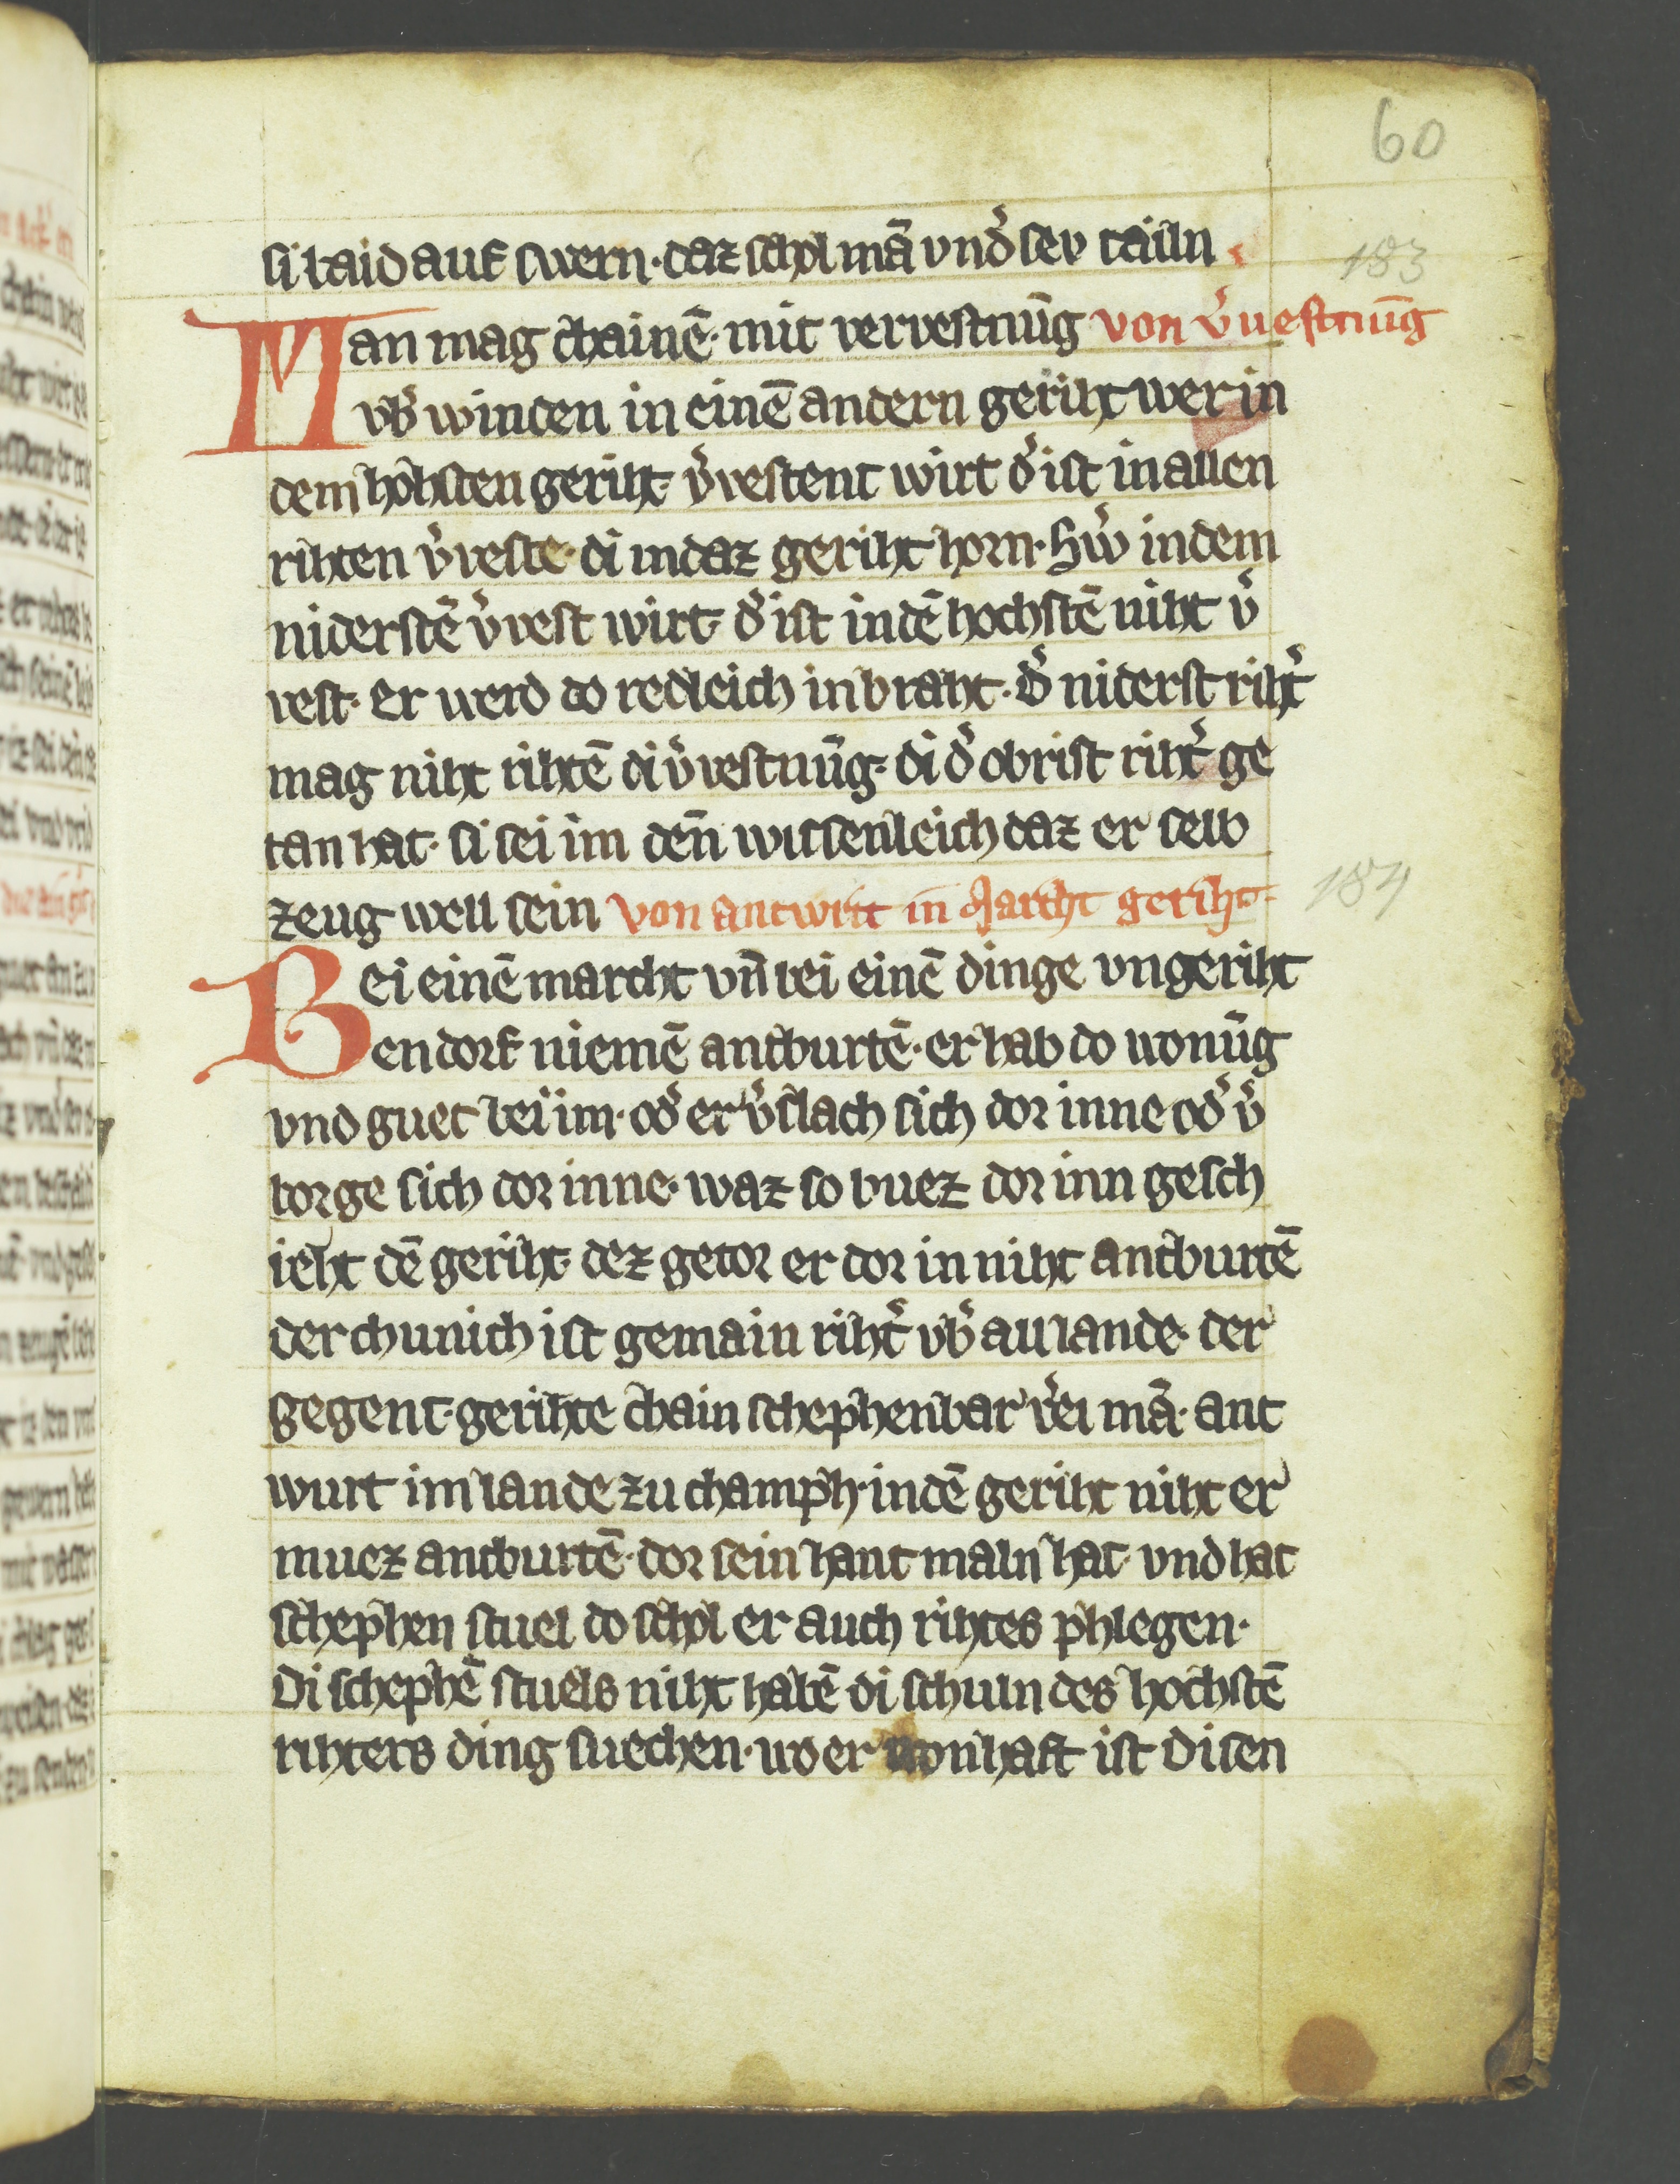 60
si laid auf swern · daz schol mā vnd̾ sev tailn
183
Man mag chainē · mit vervestnūg von v̾uestnūg
vb̾ winden in einē andern geriht wer in
dem hohsten geriht · v̾vestent wirt d̾ ist in allen
rihten v̾veste · di in daz geriht horn · Sw̾ in dem
niderstē v̾vest wirt · d̾ ist in dē hochstē niht v̾
vest · er werd do redleich in braht · D̾ niderst riht̾
mag niht rihtē di v̾vestnūg · di d̾ obrist riht̾ ge
tan hat · si sei im den̄ wissenleich daz er selb
zeug well sein von antwrtt in Marcht geriht ·
184
Bei einē marcht vn̄ bei einē dinge vngeriht
en dorf niemē antburtē · er hab do wonūg
vnd guet bei im · od̾ er v̾slach sich dor inne od̾ v̾
borge sich dor inne · waz so buez dor inn gesch
ieht dē geriht · dez getor er dor in niht antburtē
der chunich ist gemain riht̾ vb̾ all lande · der
gegent · gerihte chain schephenbar vrei mā · ant
wurt im lande zu champh · in dē geriht niht er
muez antburtē · dor sein hant maln hat · vnd hat
schephen stuel do schol er auch rihtes phlegen ·
Di schephē stuels niht habē di schuln des hochstē
rihters ding suechen · wo er wonhaft ist Disen